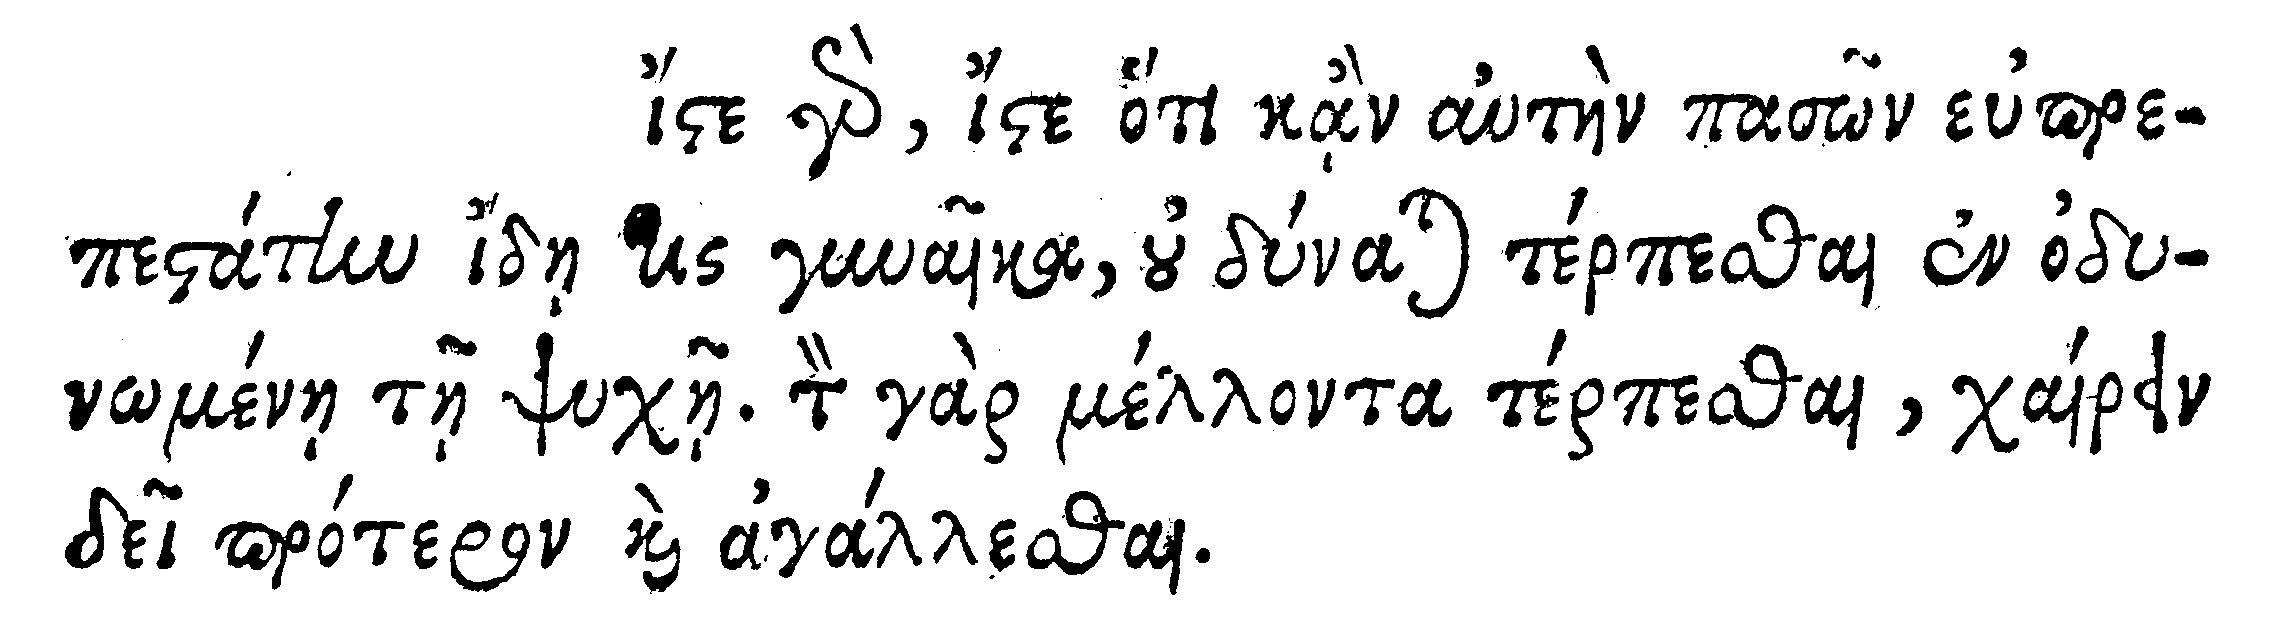 ἴστε γὸ, ἴστε ὅτι κᾂν αὐτὴν πασῶν εὐπρε-
πεστάτην ἴδῃ τις γυναῖκα, οὐ δύναται τέρπεσθαι ἐν ὀδυ-
νωμένῃ τῇ ψυχῇ. τὸν γὰρ μέλλοντα τέρπεσθαι, χαίρειν
δεῖ πρότερον καὶ ἀγάλλεσθαι.